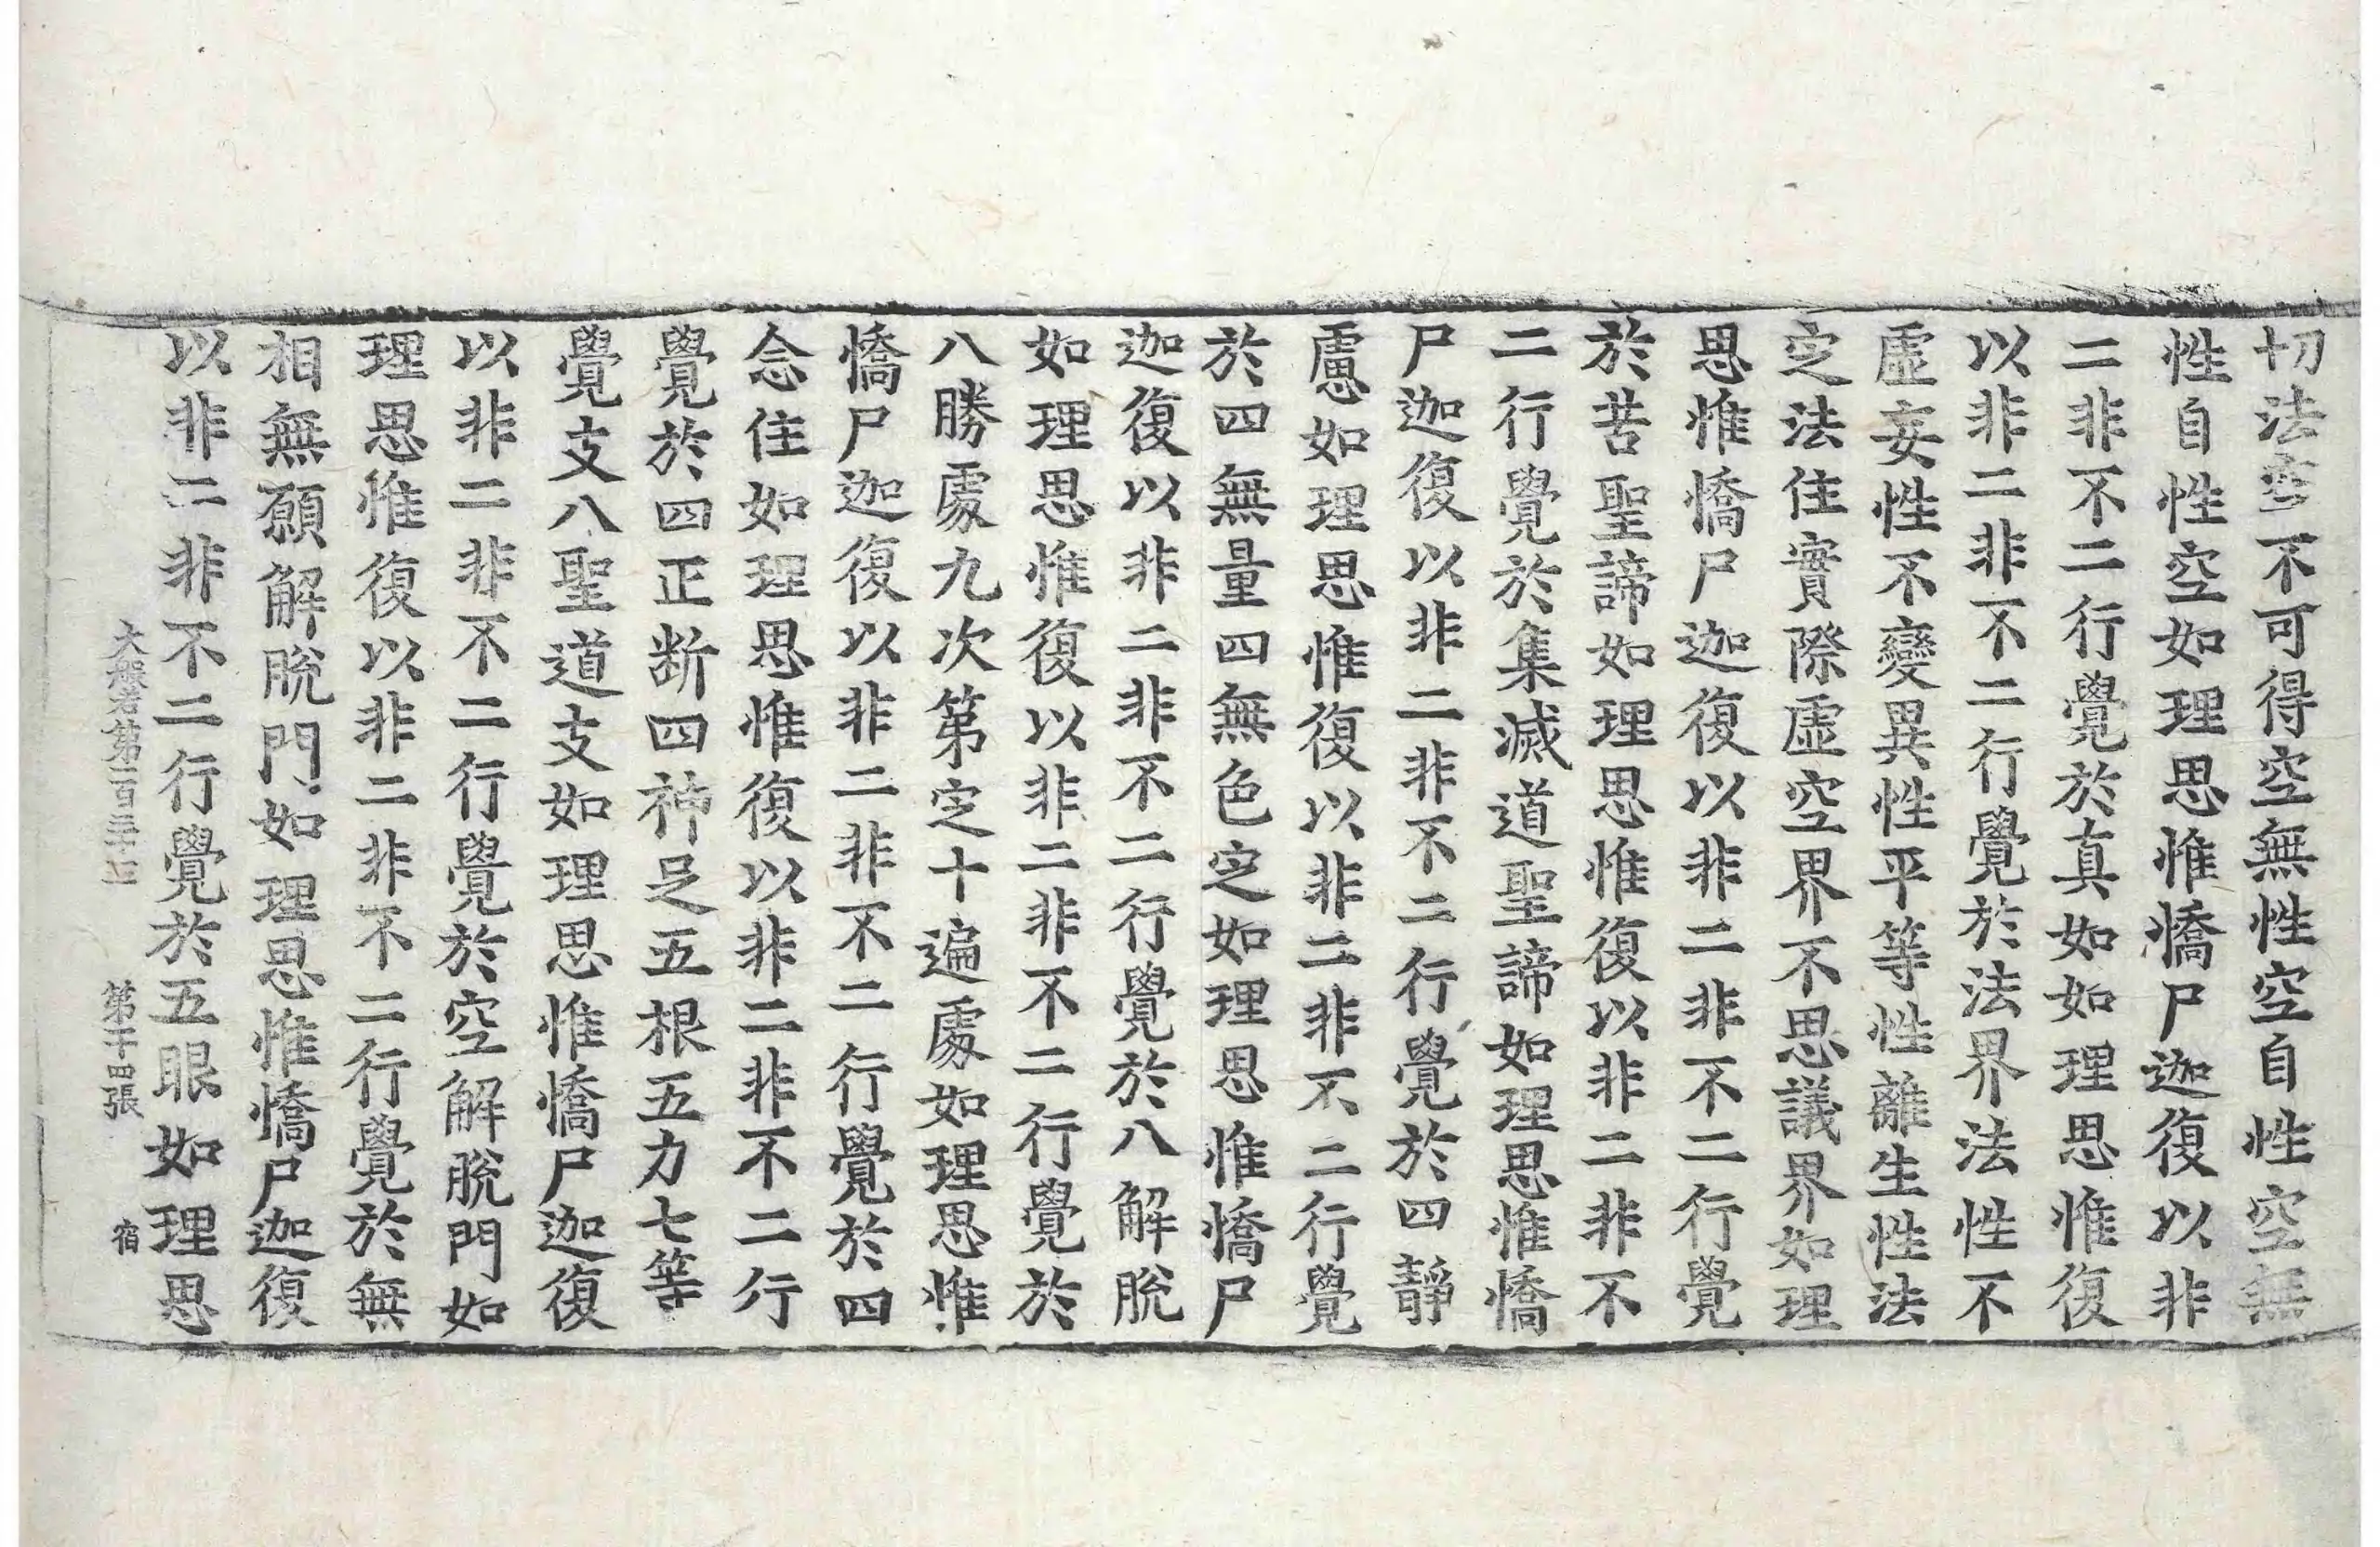 切法空不可得空無性空自性空無
性自性空如理思惟憍尸迦復以非
二非不二行覺於真如如理思惟復
以非二非不二行覺於法界法性不
虛妄性不變異性平等性離生性法
定法住實際虛空界不思議界如理
思惟憍尸迦復以非二非不二行覺
於苦聖諦如理思惟復以非二非不
二行覺於集滅道聖諦如理思惟憍
尸迦復以非二非不二行覺於四靜
慮如理思惟復以非二非不二行覺
於四無量四無色定如理思惟憍尸
迦復以非二非不二行覺於八解脫
如理思惟復以非二非不二行覺於
八勝處九次第定十遍處如理思惟
憍尸迦復以非二非不二行覺於四
念住如理思惟復以非二非不二行
覺於四正断四神足五根五力七等
覺支八聖道支如理思惟憍尸迦復
以非二非不二行覺於空解脫門如
理思惟復以非二非不二行覺於無
相無願解脫門如理思惟憍尸迦復
以非二非不二行覺於五眼如理思
大般若第一百三十七 第二十四張 宿